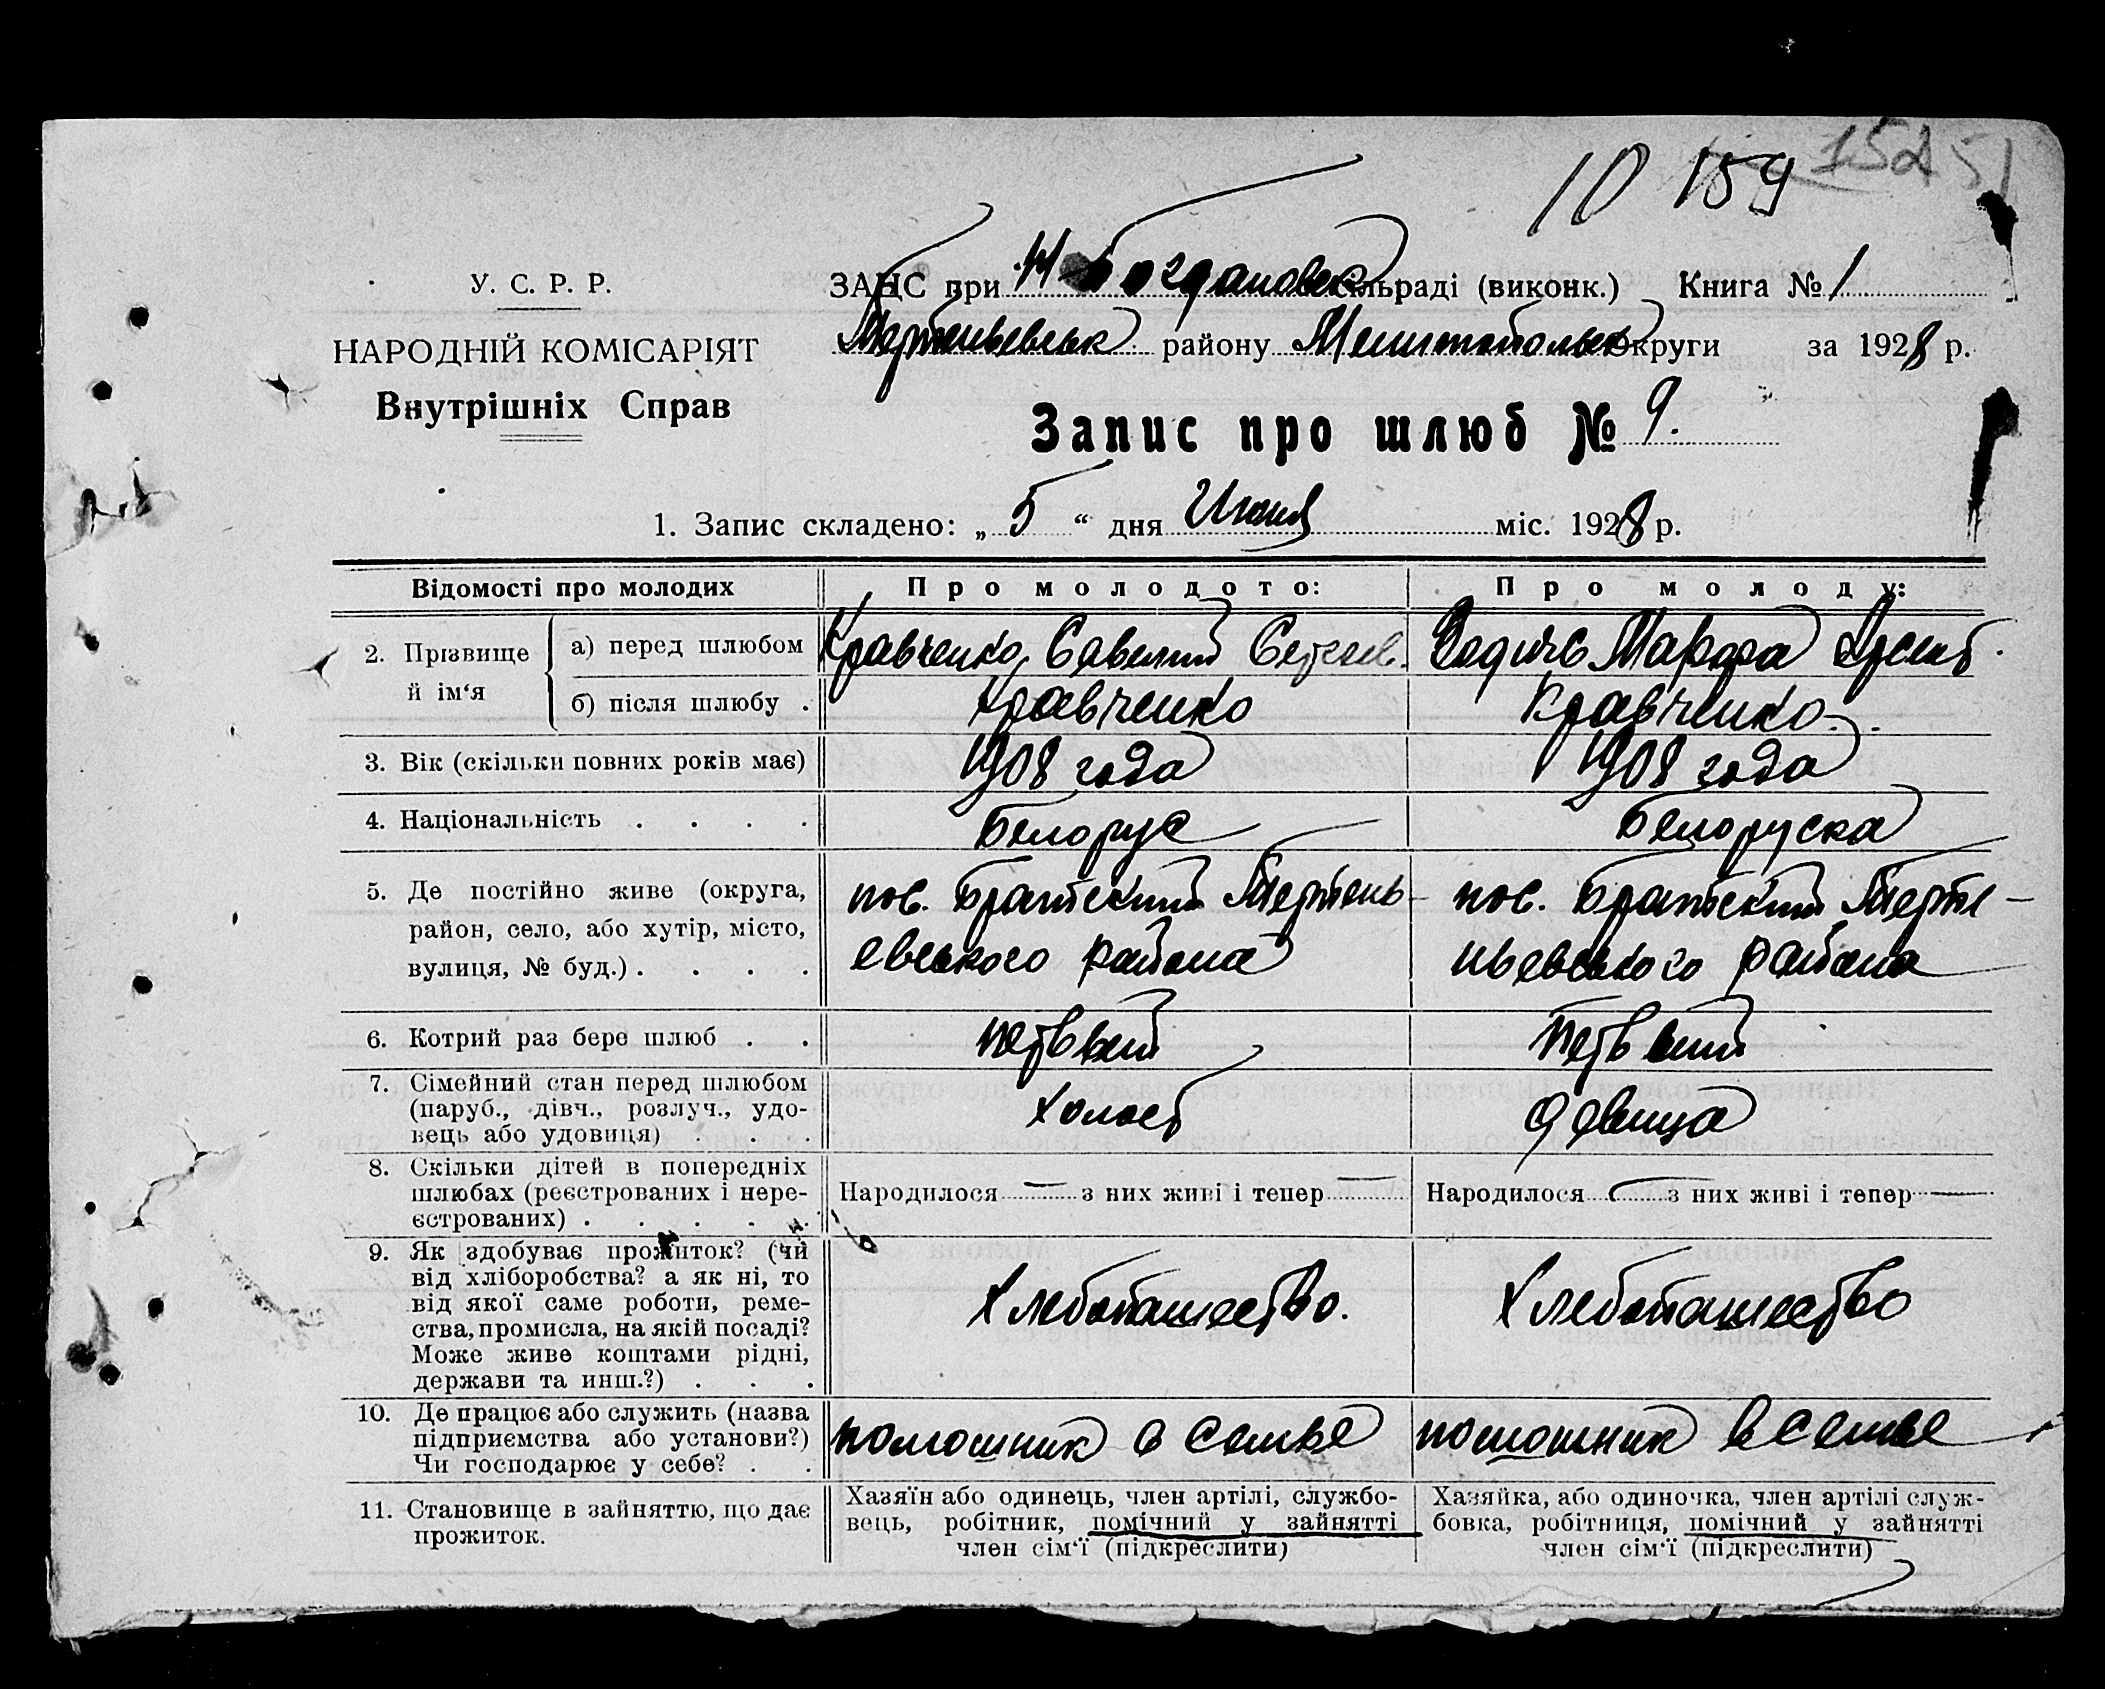 10 159 152 51
У. С. Р. Р.
НАРОДНІЙ КОМІСАРІЯТ
Внутрішніх Справ
ЗАНС при Н Богдановск сільраді (виконк.) Книга № 1
району Мелитопольск округи за 1928 р.
Запис про шлюб № 9.
1. Запис складено: „5“ дня Июня міс. 1928 р.
Відомості про молодих
Про молодого:
Про молоду:
2. Прізвище й ім‘я
а) перед шлюбом
Кравченко Савелий
Марфа
б) після шлюбу .
Кравченко
Кравченко
3. Вік (скільки повних років має)
1908 года
1908 года
4. Національність . . . .
Белорус
Белоруска
5. Де постійно живе (округа,
район, село, або хутір, місто,
вулиця, № буд.) . . . .
пос. Братский Терпень-
евського района
пос. Братский Терпе-
ньевського района
6. Котрий раз бере шлюб . .
первый
первый
7. Сімейний стан перед шлюбом
(паруб., дівч., розлуч., удо-
вець або удовиця) . . .
холост
девица
8. Скільки дітей в попередніх
шлюбах (реєстрованих і нере-
єстрованих) . . . . .
Народилося — з них живі і тепер —
Народилося — з них живі і тепер —
9. Як здобуває прожиток? (чи
від хліборобства? а як ні, то
від якої саме роботи, реме-
ства, промисла, на якій посаді?
Може живе коштами рідні,
держави та инш.?) . . .
Хлебопашество.
Хлебопашество
10. Де працює або служить (назва
підприємства або установи?)
Чи господарює у себе? . .
помошник в семье
помошник в семье
11. Становище в зайняттю, що дає
прожиток.
Хазяїн або одинець, член артілі, службо-
вець, робітник, помічний у зайнятті
член сім‘ї (підкреслити)
Хазяйка, або одиночка, член артілі служ-
бовка, робітниця, помічний у зайнятті
член сім‘ї (підкреслити)